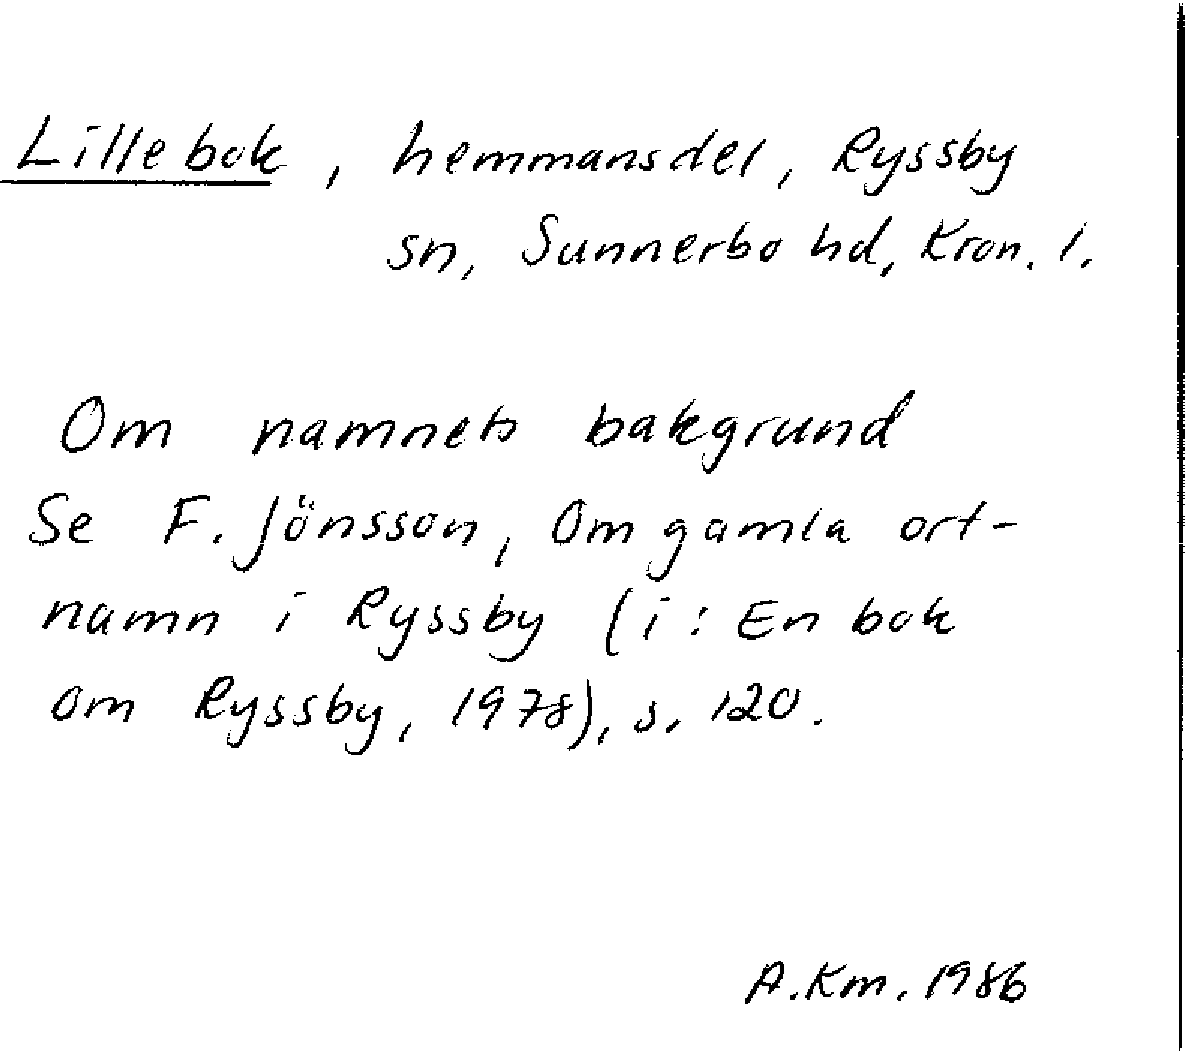 Lillebok, hemmansdel, Ryssby
sn, Sunnerbo hd, Kron. l.
Om namnets bakgrund
Se F. Jönsson, Om gamla ort-
namn i Ryssby (i: En bok
om Ryssby, 1978), s. 120.
A.Km. 1986